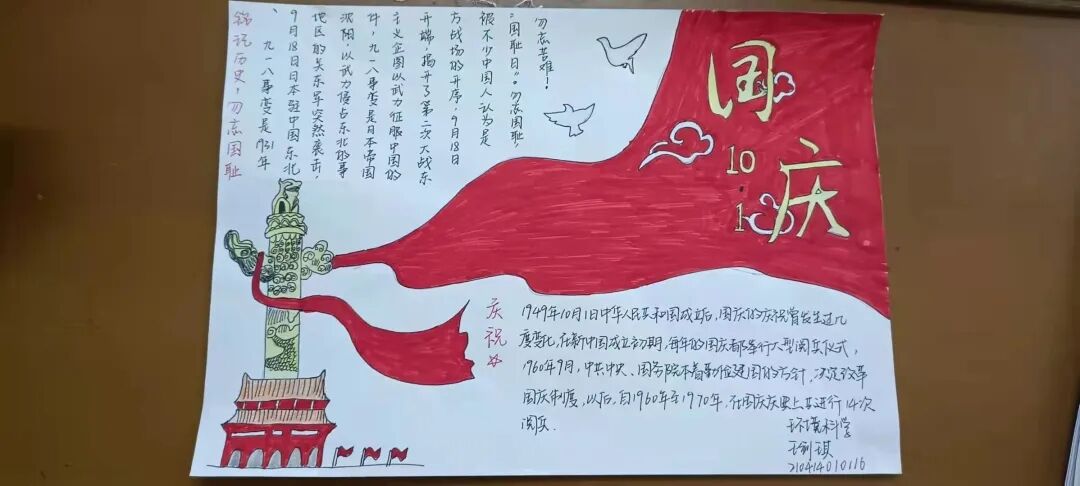 国庆
10.1
铭记历史,勿忘国耻
九一八事变是1931年
9月18日日本驻中国东北
地区的关东军突然袭击,
沈阳,以武力侵占东北的事
件,九一八事变是日本帝国
主义企图以武力征服中国的
开端,揭开了第二次大战东
方战场的开序,9月18日
被不少中国人认为是
“国耻日”。勿忘国耻,
勿忘苦难!
庆祝
1949年10月1日中华人民共和国成立后,国庆的庆祝曾发生过几
度变化,在新中国成立初期,每年的国庆都举行大型阅兵仪式,
1960年9月,中共中央、国务院本着勤俭建国的方针,决定改革
国庆制度,以后,自1960年至1970年,在国庆庆典上共进行14次
阅兵.
环境科学
210414010116